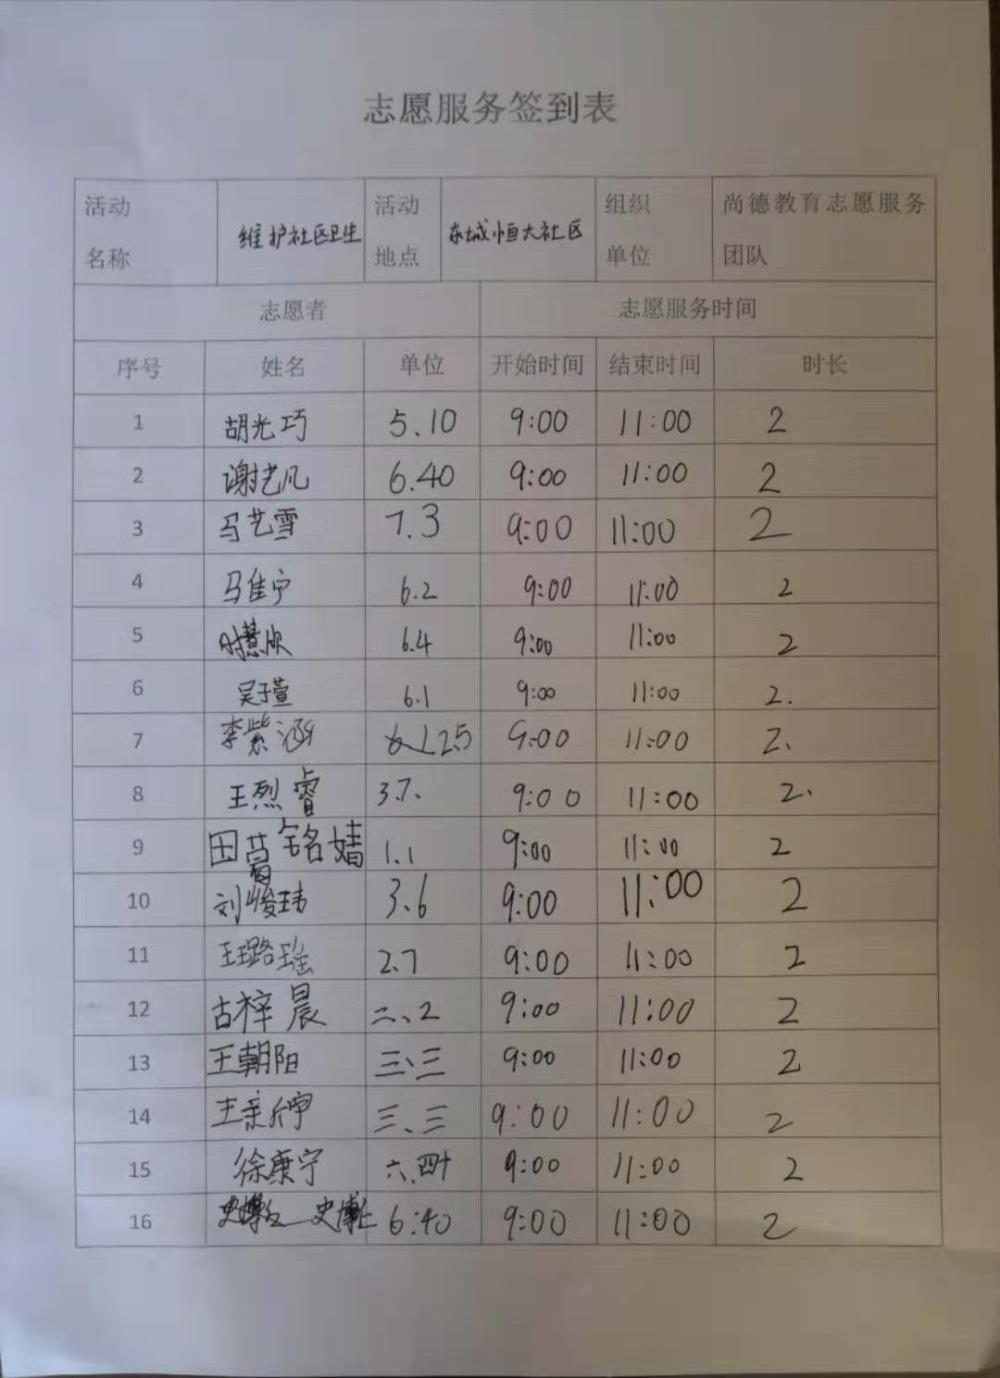 志愿服务签到表
活动名称 维护社区卫生 活动地点 东城恒大社区 组织单位 尚德教育志愿服务团队
志愿者 志愿服务时间
序号 姓名 单位 开始时间 结束时间 时长
1 胡光巧 5.10 9:00 11:00 2
2 谢艺凡 6.40 9:00 11:00 2
3 马艺雪 7.3 9:00 11:00 2
4 马佳宁 6.2 9:00 11:00 2
5 时慧欣 6.4 9:00 11:00 2
6 吴子萱 6.1 9:00 11:00 2.
7 李紫涵 25 9:00 11:00 2.
8 王烈睿 3.7. 9:00 11:00 2.
9 田 铭婧 1.1 9:00 11:00 2
10 刘峻玮 3.6 9:00 11:00 2
11 王璐瑶 2.7 9:00 11:00 2
12 古梓晨 二、2 9:00 11:00 2
13 王朝阳 三、三 9:00 11:00 2
14 王 三、三 9:00 11:00 2
15 徐康宁 六、四十 9:00 11:00 2
16 史 史 6:40 9:00 11:00 2